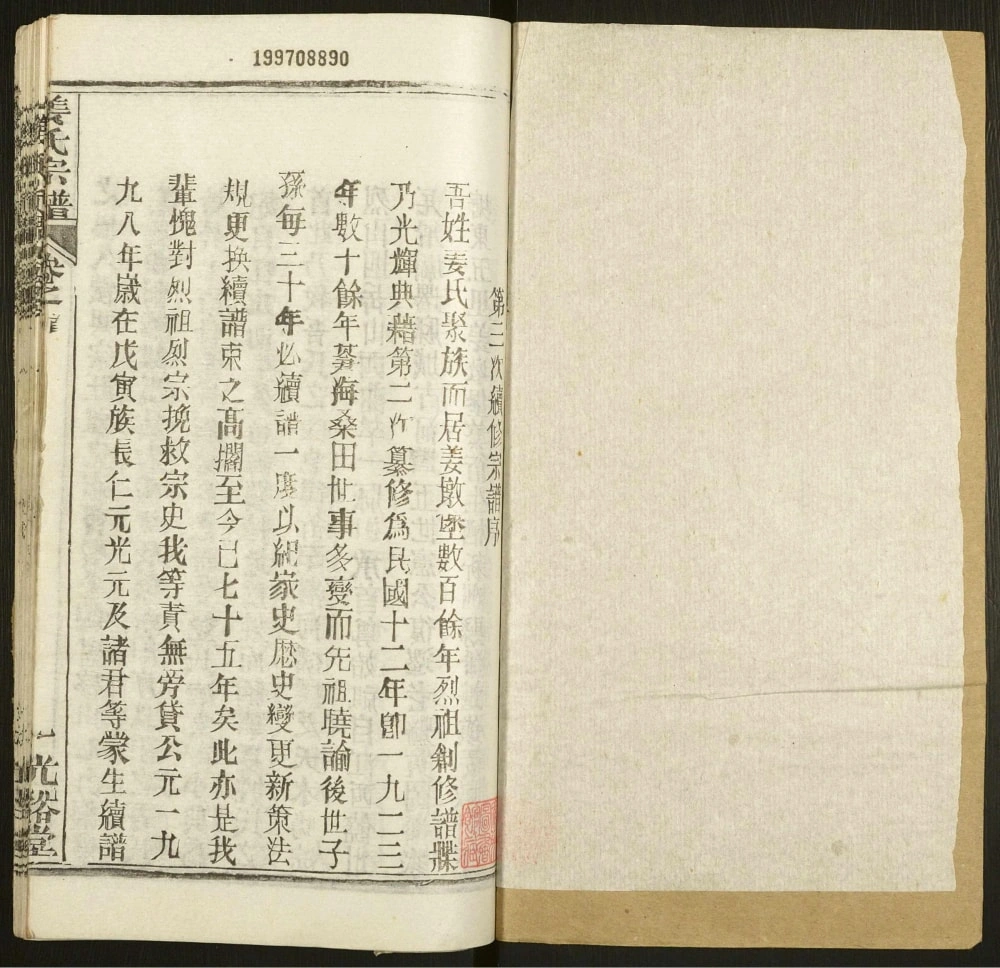 199708890
第三次續修宗譜序
吾姓姜氏聚族而居姜墩堡數百餘年烈祖創修譜牒
乃光輝典藉第二次纂修爲民國十二年卽一九二三
年數十餘年蒼海桑田世事多變而先祖曉諭後世子
孫每三十年必續譜一度以紀家史歷史變更新策法
規更換續譜束之高擱至今已七十五年矣此亦是我
輩愧對烈祖烈宗挽救宗史我等責無旁貸公元一九
九八年嵗在戊寅族長仁元光元及諸君等蒙生續譜
姜氏宗譜
卷之首
一
光裕堂